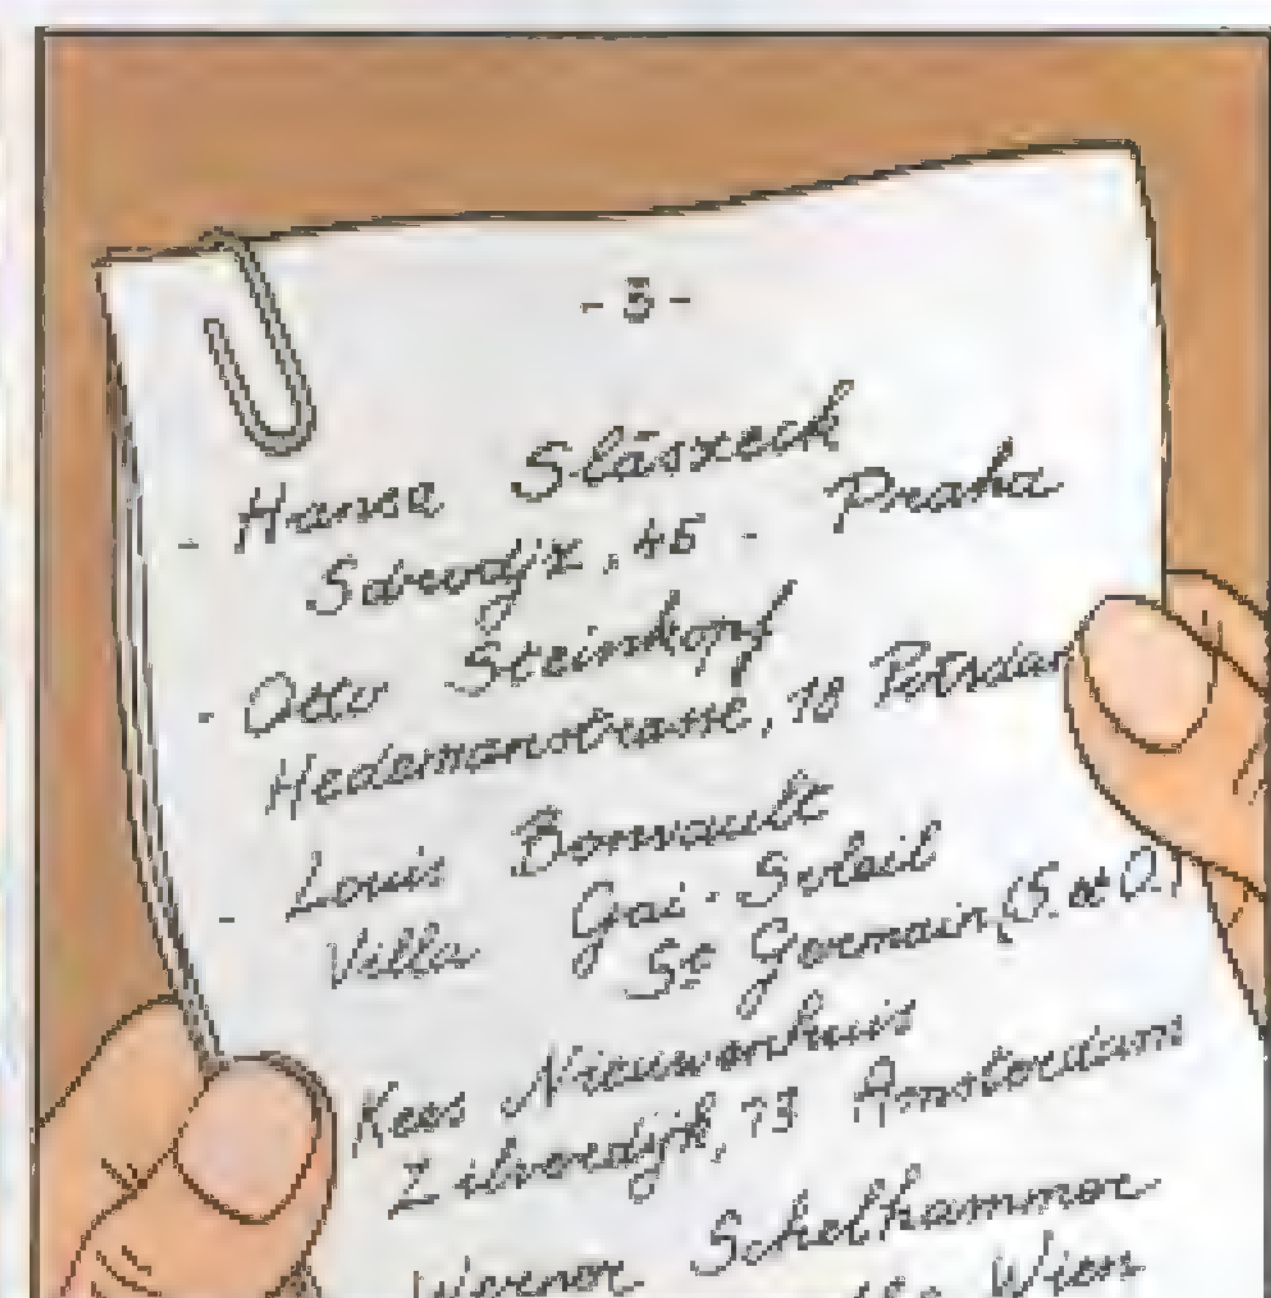 - 5 -
- Slásxeck
, 45 - Praha
- Otto Steindopf
Hedemanstrasse, 18 Potsdam
- Louis Bonvault
Villa Gai-Soleil
St Germain (S. et O.)
Kees Nieuwenhuis
Zilverdijk, 73 Amsterdam
Schelhammer
Wien